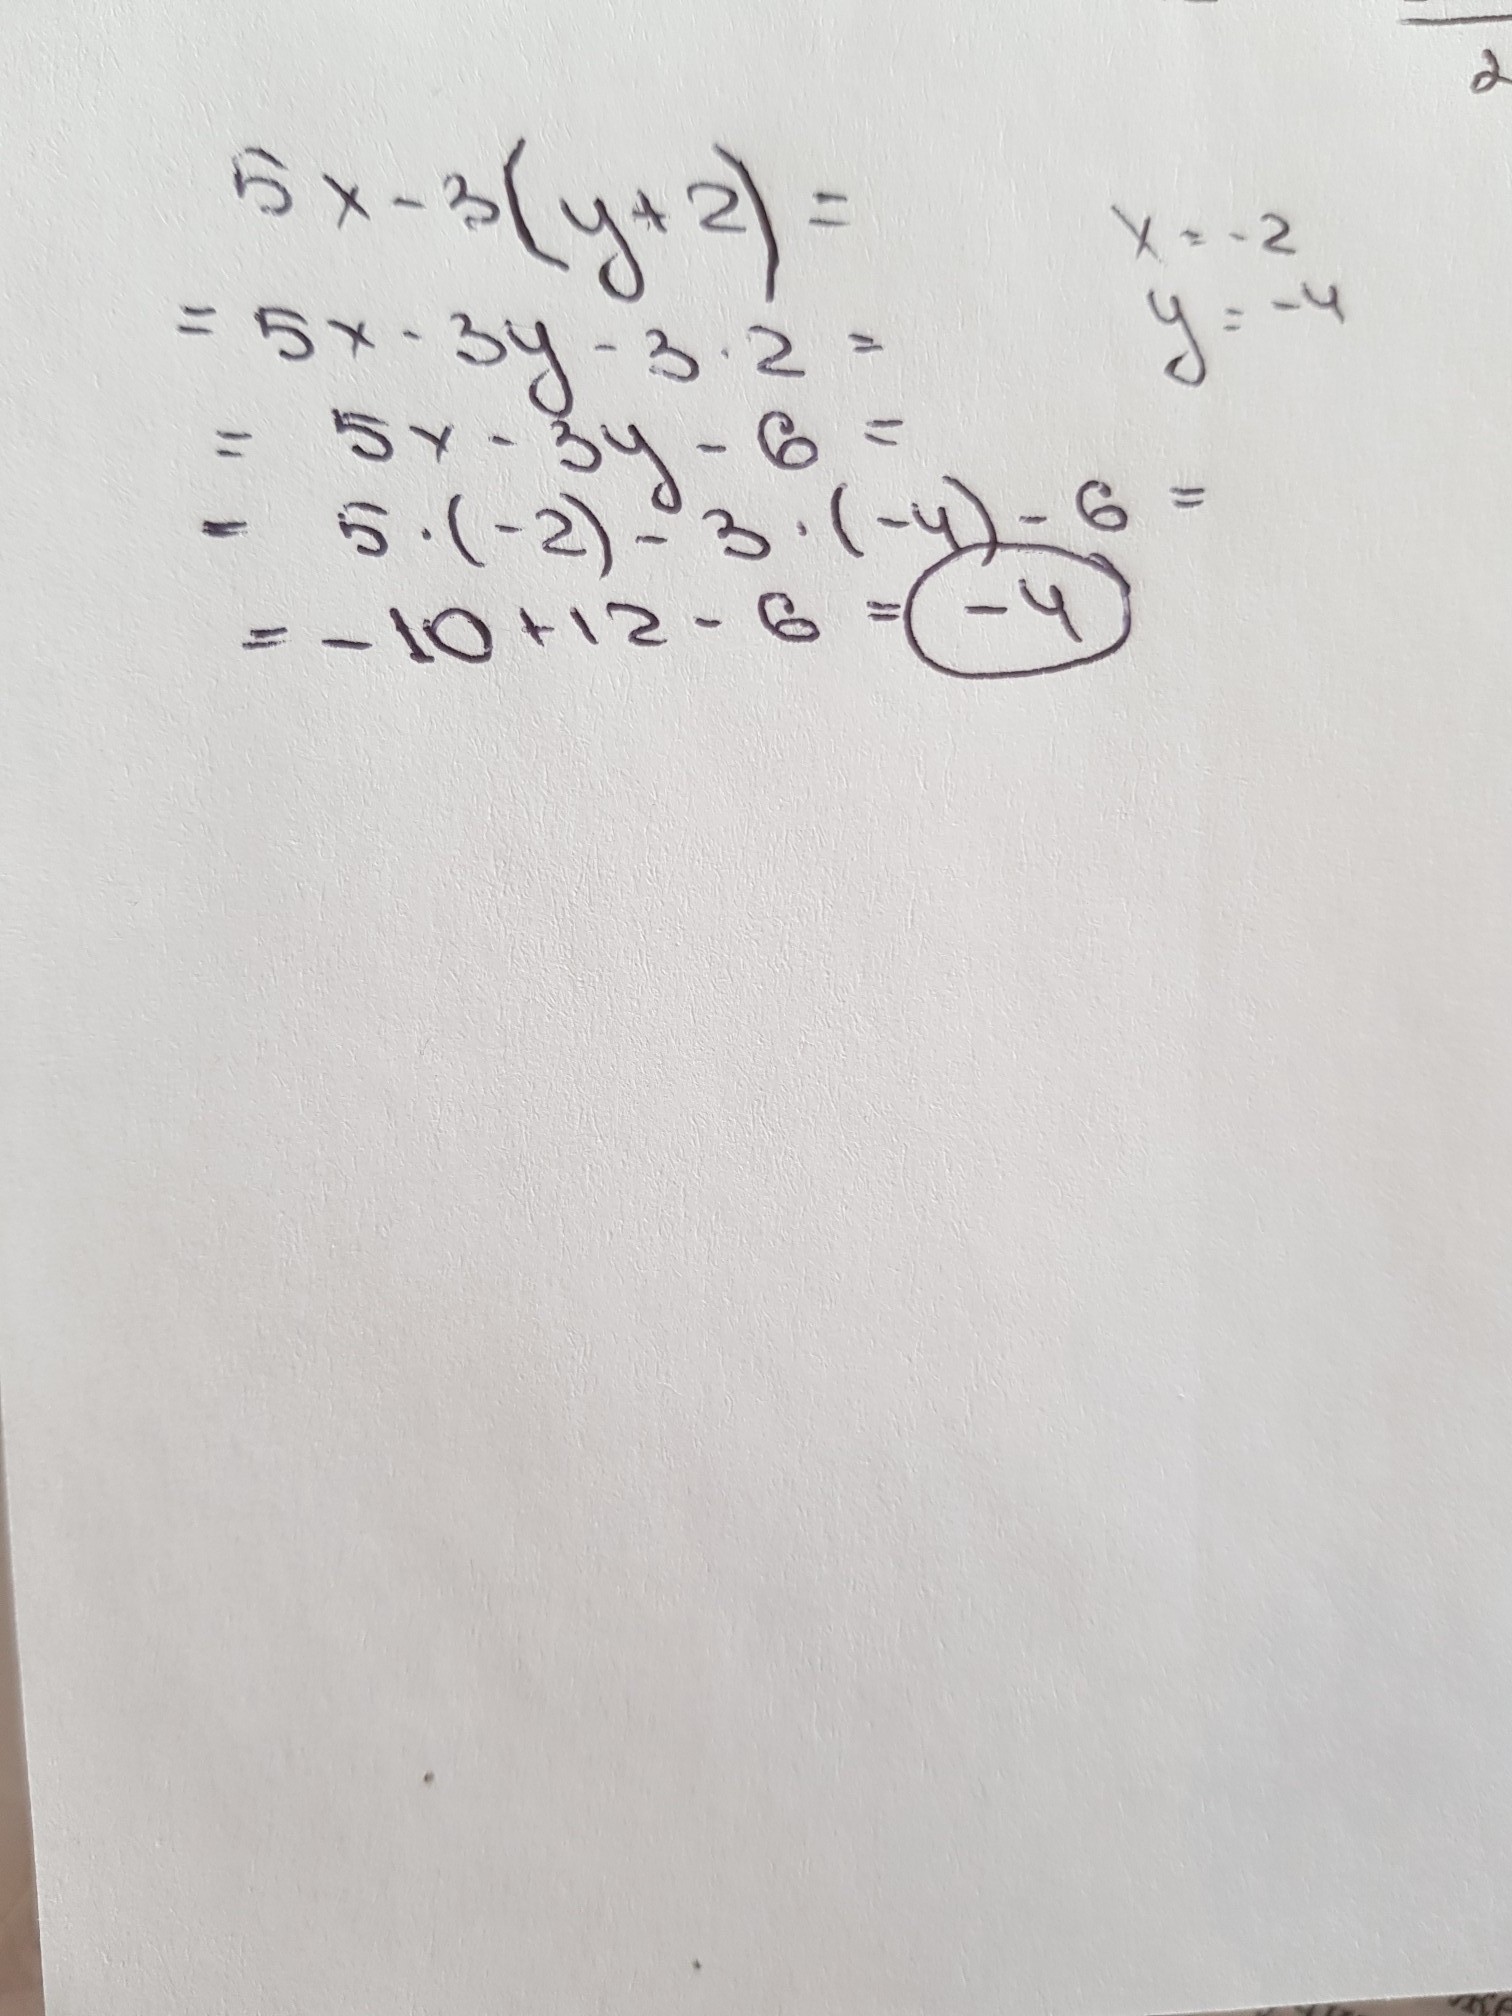 2
5x - 3(y + 2) =
x = -2
y = -4
= 5x - 3y - 3 · 2 =
= 5x - 3y - 6 =
= 5 · (-2) - 3 · (-4) - 6 =
= -10 + 12 - 6 = -4